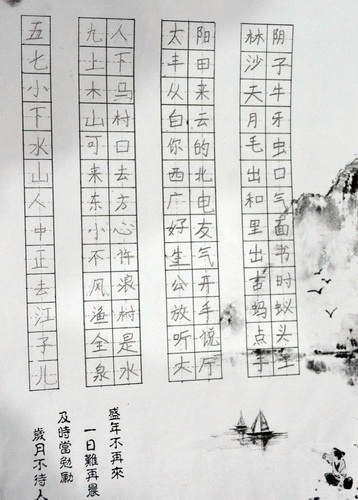 五
七
小
下
水
山
人
中
正
去
江
子
儿
九人
上下
木马
山村
可口
来去
东方
小心
不许
风浪
渔村
全是
泉水
太阳
丰田
从来
白云
你的
西北
广电
好友
生气
公开
放手
听说
大厅
林阴
沙子
天牛
月牙
毛虫
出口
和气
里面
出书
吉时
蚂蚁
点头
盛年不再來
一日難再晨
及時當勉勵
歲月不待人